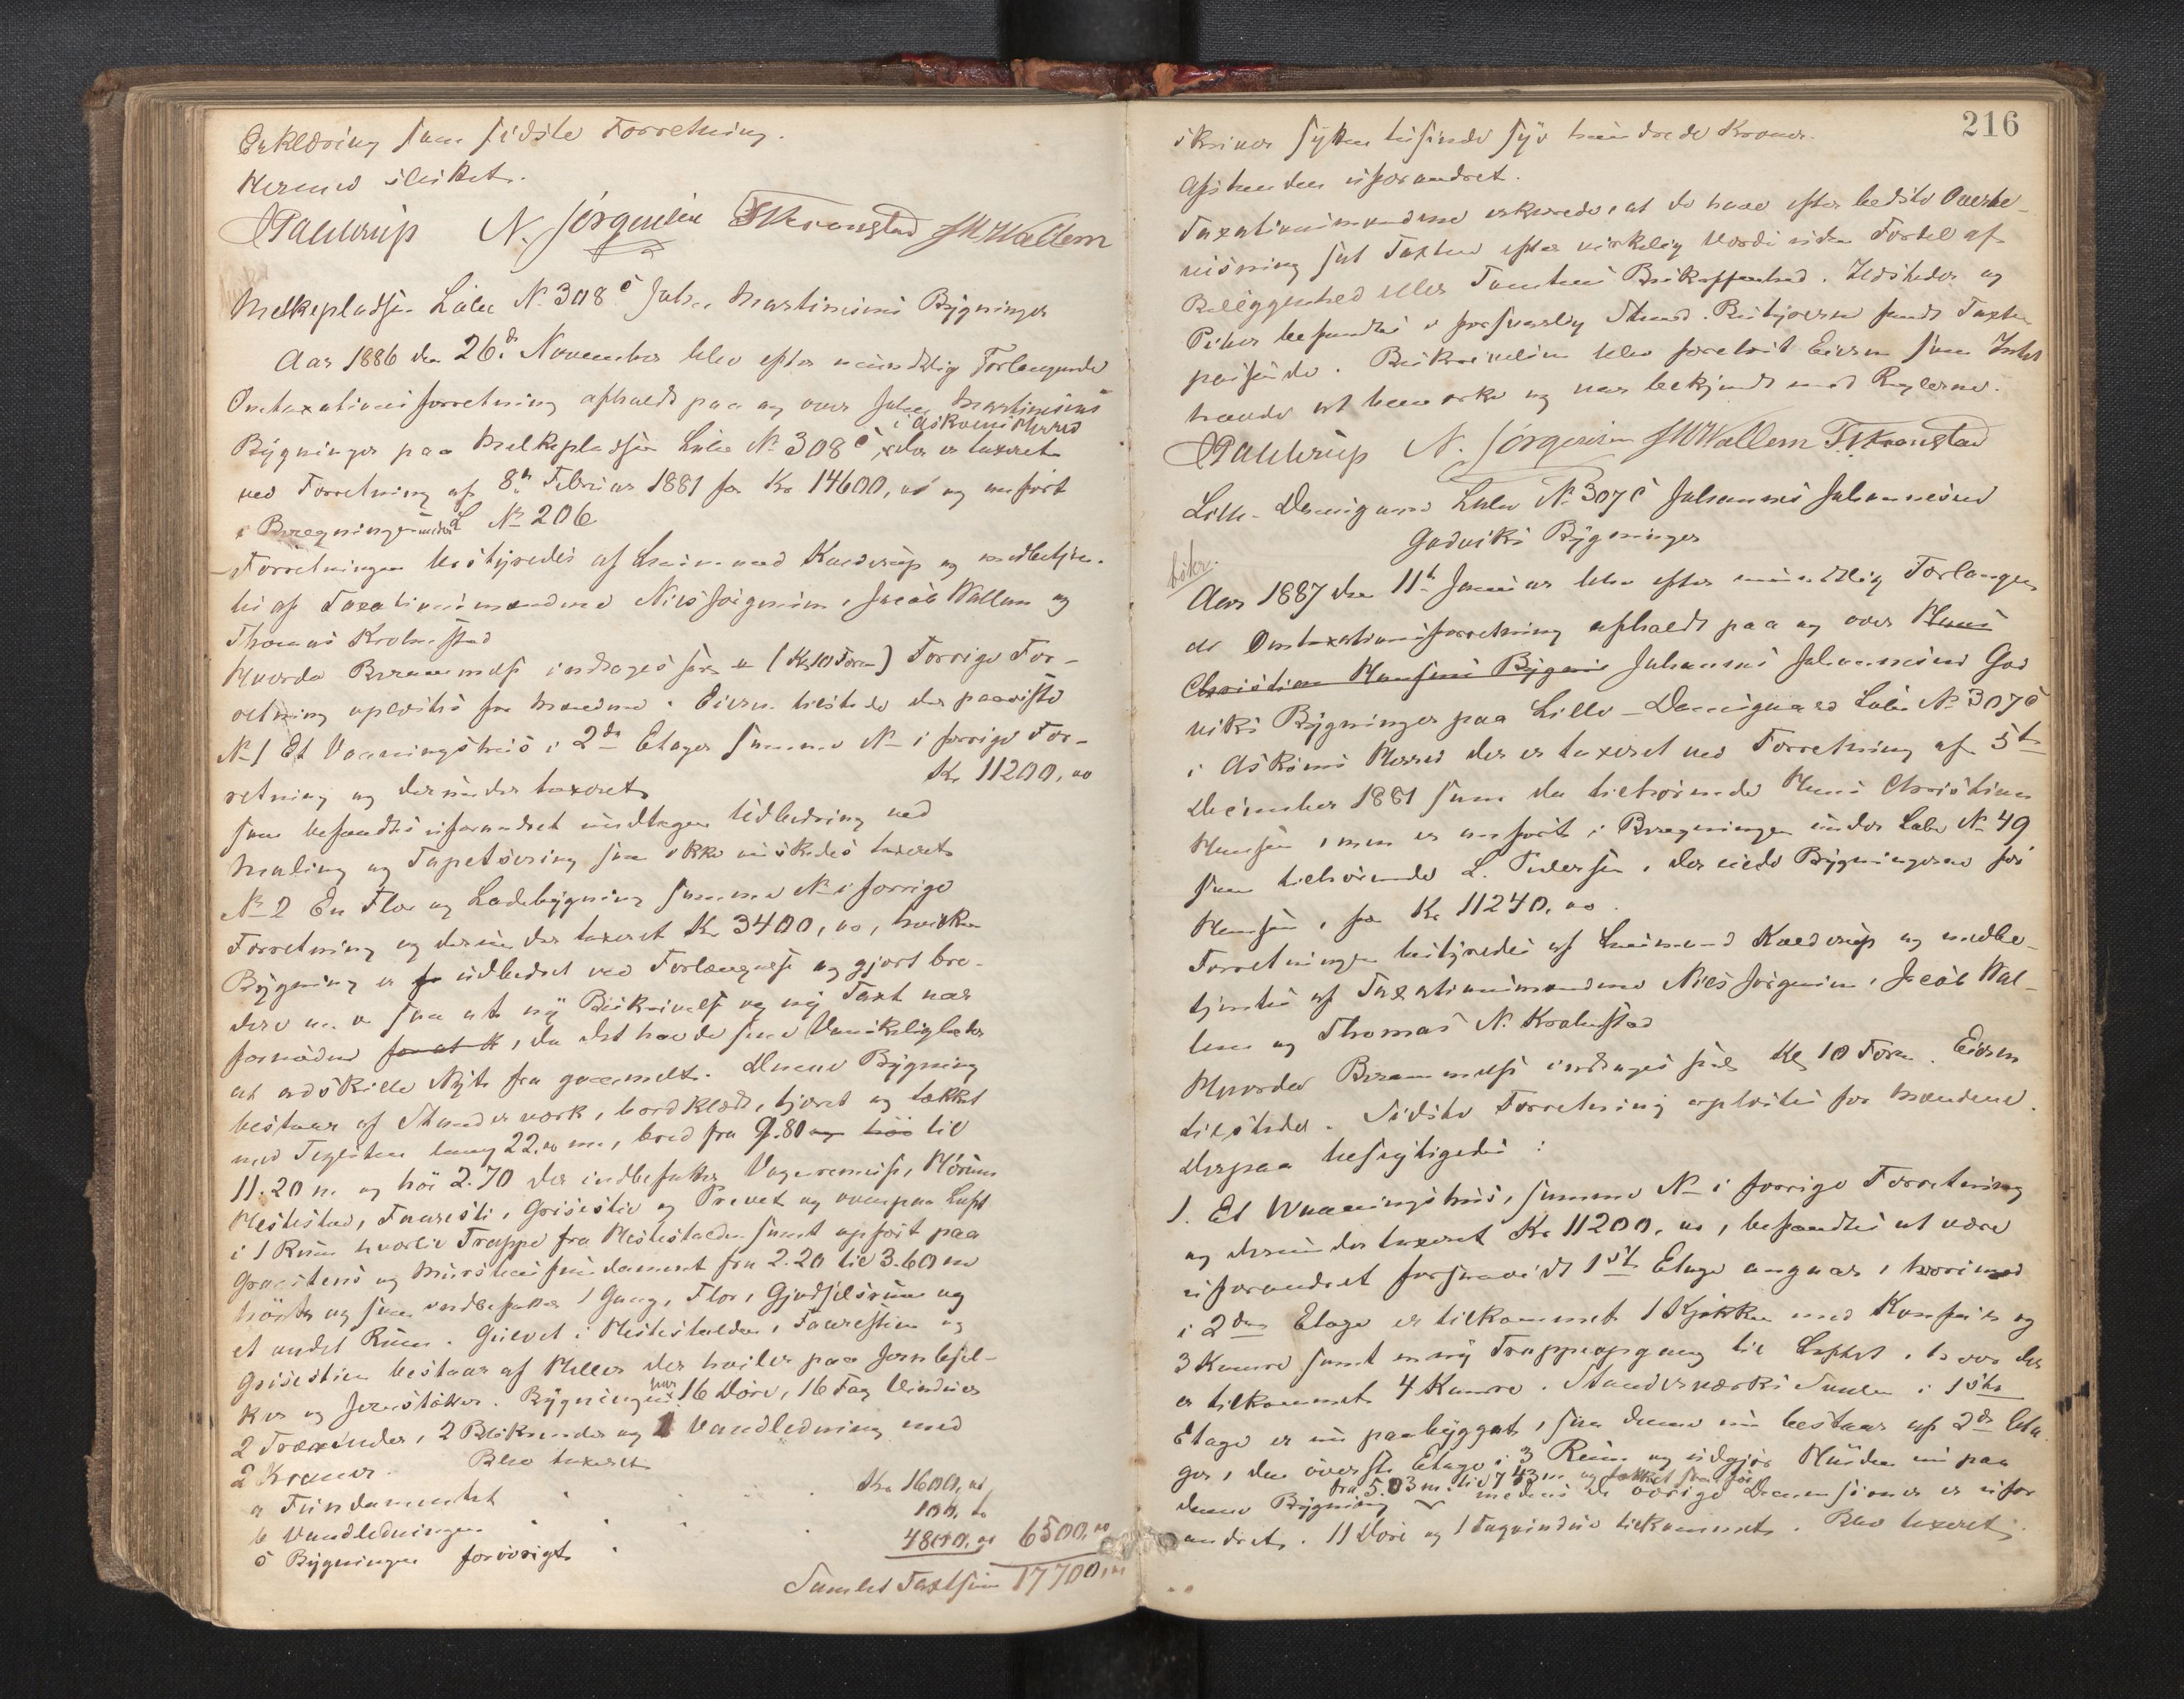 Erklæring som sidste Forretning.
Herred sluttet.
N. Jørgensen TNKronstad JMWallem
Melkepladsen Løbe N. 308 c Johan Martinsens Bygninger
Aar 1886 den 26de November blev efter mundtlig Forlangende
Omtaxationsforretning afholdt paa og over Johan Martinsens
i Askøens Herred
Bygninger paa Melkepladsen Løbe No 308 c, der er taxeret
ved Forretning af 8de Februar 1881 for Kr 14600,00 og anført
i Beregningen under L No 206
Forretningen bestyredes af Lensmand Kaldrup og medbetjen-
tes af Taxationsmændene Niels Jørgensen, Jacob Wallem og
Thomas Krohnstad
Hvorda Berammelse inddroges (Kl 10 Form) Forrige For-
retning oplæstes for Mændene. Eieren tilstede der paaviste
No 1 Et Vaaningshus i 2de Etager samme No i forrige For-
retning og derunder taxeret Kr 11200,00
som befandtes uforandret undtagen Udbedring ved
Maling og Tapetsering som ikke ønskedes taxeret
No 2 En Flor og Ladebygning samme No i forrige
Forretning og derunder taxeret Kr 3400,00, hvilken
Bygning er udbedret ved Forlængelse og gjort bre-
dere m. v saa at ny Beskrivelse og ny Taxt var
fornøden for at, da det havde sine Vanskeligheder
at adskille Nyt fra gammelt. Denne Bygning
bestaar af Stænderværk, bordklædt, tjæret og tækket
med Teglsten lang 22.00 m, bred fra 9.80 og høi til
11.20 m og høi 2.70 der indbefatter Vognremise, Hörum
Hestestald, Faaresti, Grisesti og Privet og ovenpaa Loft
i 1 Rum hvortil Trappe fra Hestestalden samt opført paa
Graastens og Murstensfundament fra 2.20 til 3.60 m
høit og som indbefatter 1 Gang, Flor, Gjødselsrum og
et andet Rum. Gulvet i Hestestalden, Faarestien og
Grisestien bestaar af Heller der hviler paa Jernbjel-
ker og Jernstolper. Bygningen har 16 Døre, 16 Fag Vinduer
2 Trærender, 2 Blikrender og 1 Vandledning med
2 Kraner. Blev taxeret
a Fundamentet Kr. 1600,00
b Vandledningen 100,00
c Bygningen forøvrigt 4800,00 6500,00
Samlet Taxtsum 17700,00
216
skriver sytten tusinde syv hundrede Kroner.
Afstanden uforandret.
Taxationsmændene erklærede, at de have efter bedste Overbe-
visning sat Taxten efter virkelig Værdi uden Fordel af
Beliggenhed eller Tomtens Beskaffenhed. Ildsteder og
Piber befandtes i forsvarlig Stand. Bestyreren fandt Taxten
passende. Beskrivelsen blev forelæst Eieren som Intet
havde at bemærke og var bekjendt med Reglerne.
N. Jørgensen JMWallem T.N.Kronstad
Lille-Damsgaard Løbe No 307 c Johannes Johannesens
Godviks Bygninger
Aar 1887 den 11te Januar blev efter mundtlig Forlangen
de Omtaxationsforretning afholdt paa og over Hans
Christian Hansens Bygnin Johannes Johannesens God
viks Bygninger paa Lille-Damsgaard Løbe No 307 c
i Askøens Herred der er taxeret ved Forretning af 5te
December 1881 som da tilhørende Hans Christian
Hansen, men er anført i Beregningen under Løbe No 49
som tilhørende L. Pedersen, der eiede Bygningerne før
Hansen, for Kr 11240,00.
Forretningen bestyredes af Lensmand Kaldrup og medbe-
tjentes af Taxationsmændene Niels Jørgensen, Jacob Wal-
lem og Thomas N. Krohnstad
Hvorda Berammelse inddroges Kl 10 Form. Eieren
tilstede. Sidste Forretning oplæstes for Mændene.
Derpaa besigtigedes:
1. Et Vaaningshus, samme No i forrige Forretning
og derunder taxeret Kr 11200,00, befandtes at være
uforandret forsaavidt 1ste Etage angaar, hvorimod
i 2den Etage er tilkommet 1 Kjøkken med Komfur og
3 Kamre samt en ny Trappeopgang til Loftet, hvor der
er tilkommet 4 Kamre. Stænderværks Svalen i 1ste
Etage er nu paabygget, saa denne nu bestaar af 2de Eta
ger, den øverste Etage i 3 Rum og udgjør Høiden nu paa
fra 5.03 m. til 7.43 m og tækket som før
denne Bygning medens de øvrige Dimensioner er ufor
andret. 11 Døre og 1 Tagvindue tilkommet. Blev taxeret